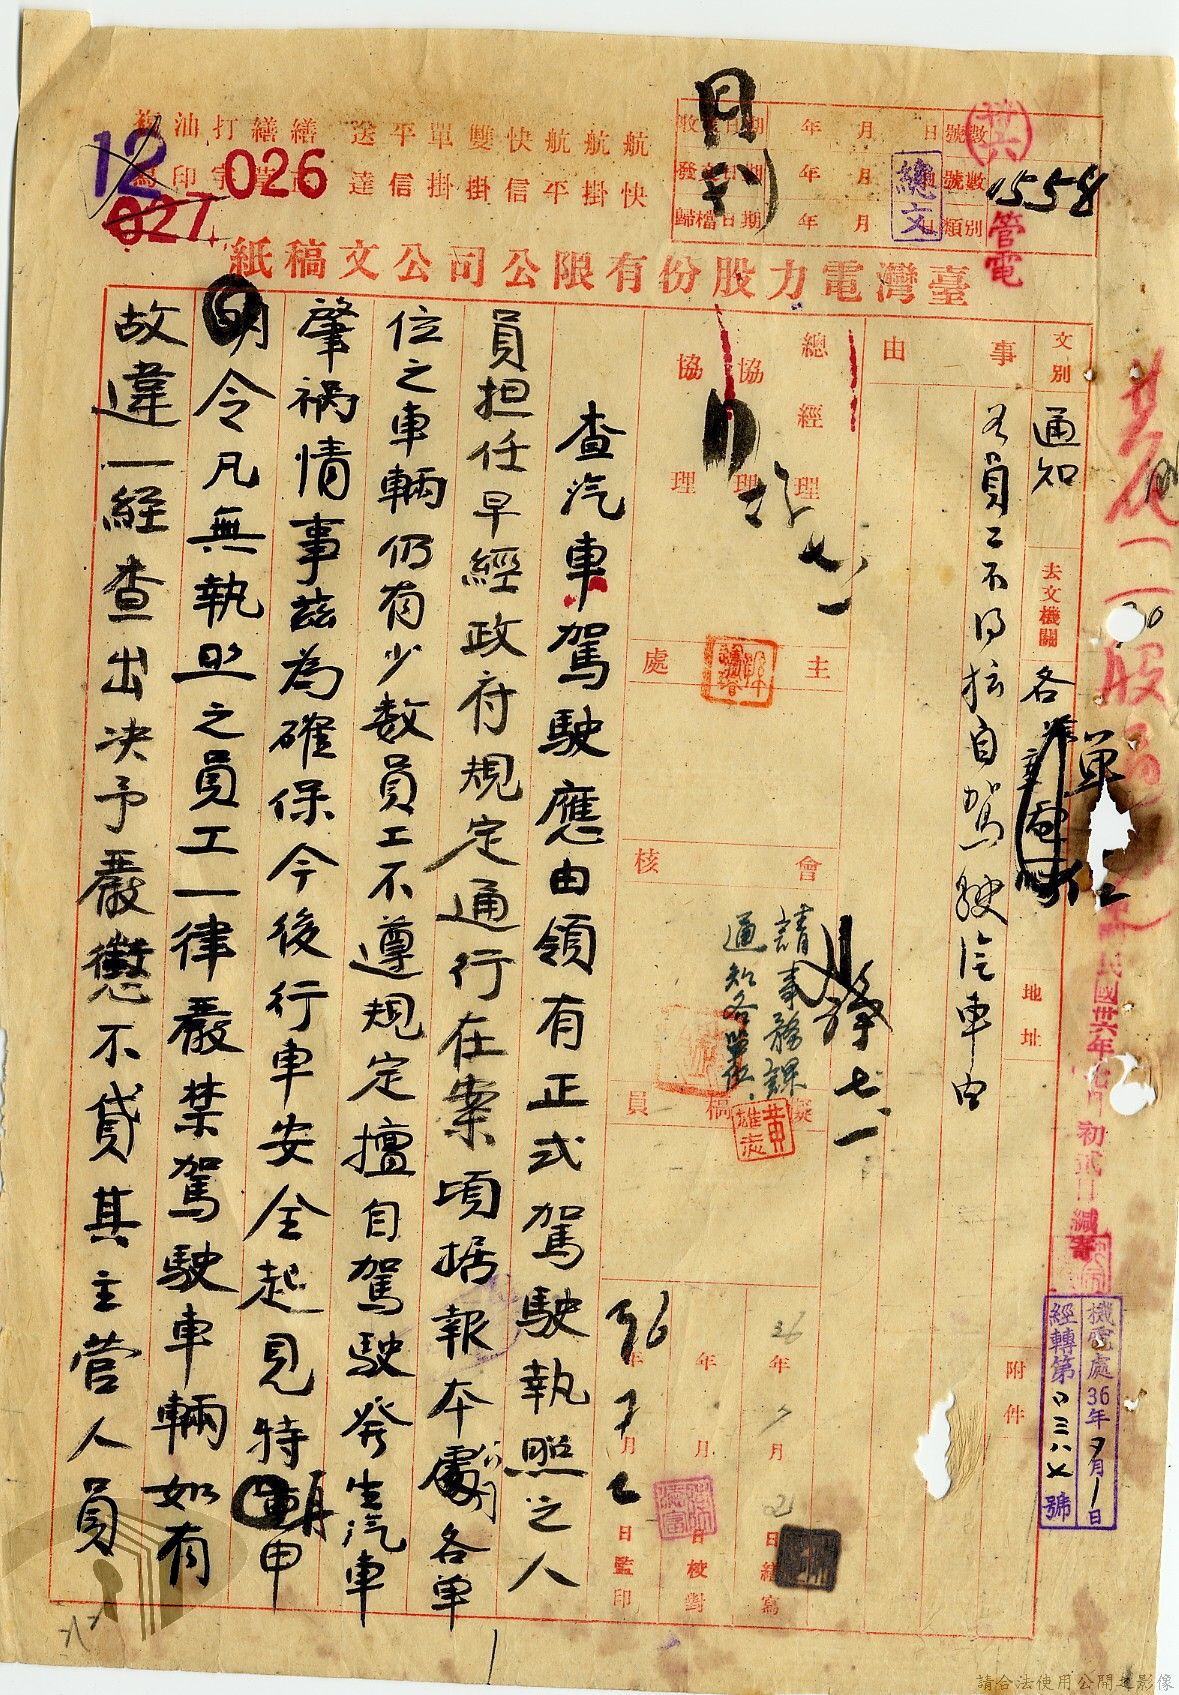 航快
航掛
航平
快信
雙掛
單掛
平信
送達
繕
打字
油印
12
026
027
月刊
收文日期 年 月 日
發文日期 年 月 日
歸檔日期 年 月 日
號數
號數 1558
類別
總文
管電
臺灣電力股份有限公司公文稿紙
民國卅六年七月初貳日緘寄
機電處36年7月1日
經轉第 號
文別
通知
去文機關
各單位
地址
附件
事由
為員工不得擅自駕駛汽車由
總經理
協理
協理
主
處
會
核
請事務課
通知各單位
七一
擬稿員
36年7月2日繕寫
年 月 日校對
36年7月 日監印
查汽車駕駛應由領有正式駕駛執照之人
員担任早經政府規定通行在案頃据報本公司各單
位之車輛仍有少数員工不遵規定擅自駕駛発生汽車
肇禍情事茲為確保今後行車安全起見特申
明令凡無執照之員工一律嚴禁駕駛車輛如有
故違一經查出决予嚴懲不貸其主管人員
請合法使用公開之影像